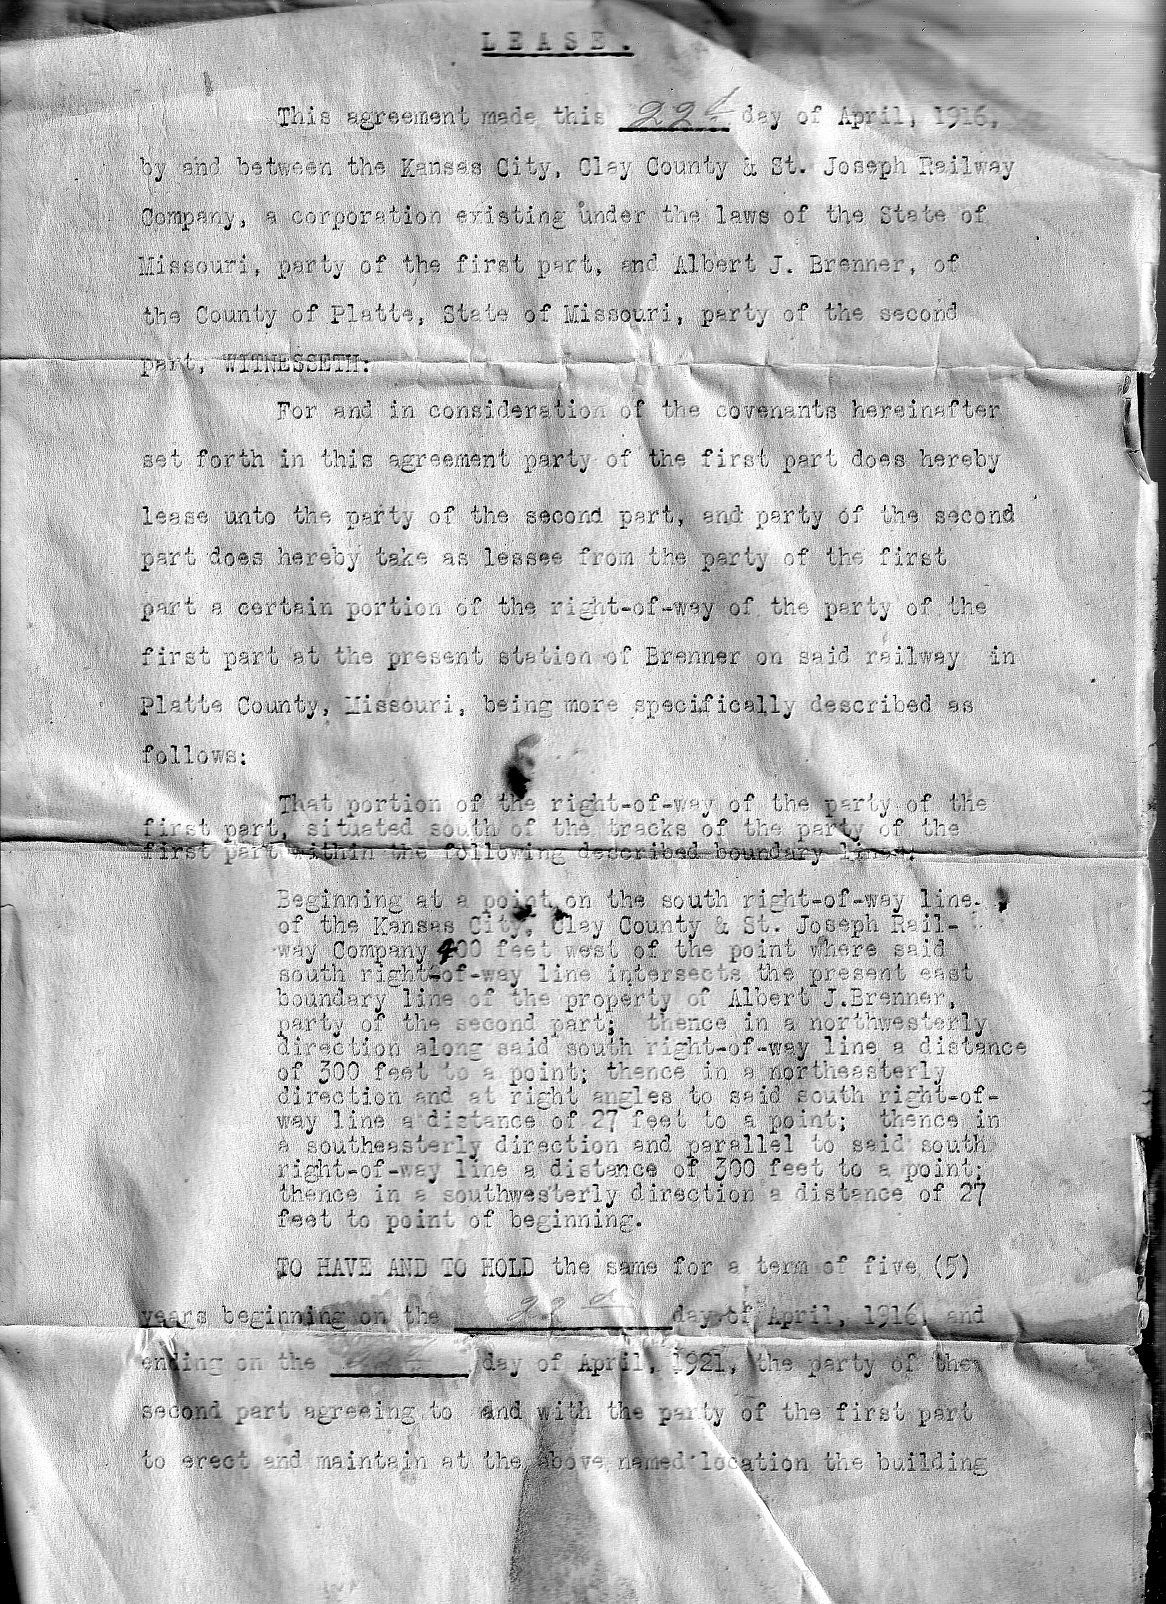 LEASE.
This agreement made this 22d day of April, 1916,
by and between the Kansas City, Clay County & St. Joseph Railway
Company, a corporation existing under the laws of the State of
Missouri, party of the first part, and Albert J. Brenner, of
the County of Platte, State of Missouri, party of the second
part, WITNESSETH:
For and in consideration of the covenants hereinafter
set forth in this agreement party of the first part does hereby
lease unto the party of the second part, and party of the second
part does hereby take as lessee from the party of the first
part a certain portion of the right-of-way of the party of the
first part at the present station of Brenner on said railway in
Platte County, Missouri, being more specifically described as
follows:
That portion of the right-of-way of the party of the
first part, situated south of the tracks of the party of the
first part within the following described boundary lines:
Beginning at a point on the south right-of-way line
of the Kansas City, Clay County & St. Joseph Rail-
way Company 400 feet west of the point where said
south right-of-way line intersects the present east
boundary line of the property of Albert J.Brenner,
party of the second part; thence in a northwesterly
direction along said south right-of-way line a distance
of 300 feet to a point; thence in a northeasterly
direction and at right angles to said south right-of-
way line a distance of 27 feet to a point; thence in
a southeasterly direction and parallel to said south
right-of-way line a distance of 300 feet to a point;
thence in a southwesterly direction a distance of 27
feet to point of beginning.
TO HAVE AND TO HOLD the same for a term of five (5)
years beginning on the 22d day of April, 1916, and
ending on the day of April, 1921, the party of the
second part agreeing to and with the party of the first part
to erect and maintain at the above named location the building